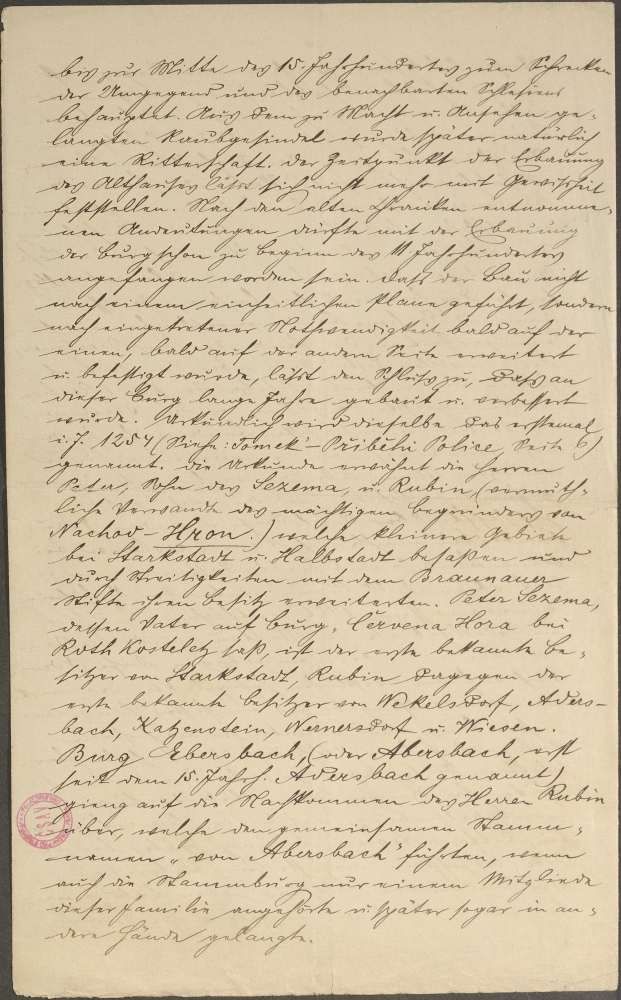 bis zur Mitte des 15. Jahrhundertes zum Schrecken
der Umgegend und des benachbarten Schlesiens
behauptet. Aus dem zu Macht u. Ansehen ge-
langten Raubgesindel wurde später natürlich
eine Ritterschaft. Der Zeitpunkt der Erbauung
des Althauses lässt sich nicht mehr mit Gewissheit
feststellen. Nach den alten Chroniken entnomme-
nen Andeutungen dürfte mit der Erbauung
der Burg schon zu Beginn des 11 Jahrhundertes
angefangen worden sein. Dass der Bau nicht
nach einem einheitlichen Plane geführt, sondern
nach eingetretener Nothwendigkeit bald auf der
einen, bald auf der andern Seite erweitert
u. befestigt wurde, lässt den Schluss zu, dass an
dieser Burg lange Jahre gebaut u. verbessert
wurde. Urkundlich wird dieselbe das erstemal
i. J. 1254 (Siehe: Tomek - Příběhi Police, Seite 6)
genannt. Die Urkunde erwähnt die Herren
Peter, Sohn des Sezema, u. Rubin, (vermuth-
liche Verwandte des mächtigen Begründers von
Nachod - Hron.) welche kleinere Gebiete
bei Starkstadt u. Halbstadt besaßen und
durch Streitigkeiten mit dem Braunauer
Stifte ihren Besitz erweiterten. Peter Sezema,
dessen Vater auf Burg, Červena Hora bei
Roth Kosteletz saß, ist der erste bekannte Be-
sitzer von Starkstadt, Rubin dagegen der
erste bekannte Besitzer von Wekelsdorf, Aders-
bach, Katzenstein, Wernersdorf u. Wiesen.
Burg Ebersbach, (oder Abersbach, erst
seit dem 15. Jahrh. Adersbach genannt)
gieng auf die Nachkommen des Herren Rubin
über, welche den gemeinsamen Stamm-
namen „von Abersbach" führten, wenn
auch die Stammburg nur einem Mitgliede
dieser Familie angehörte u. später sogar in an-
dere Hände gelangte.